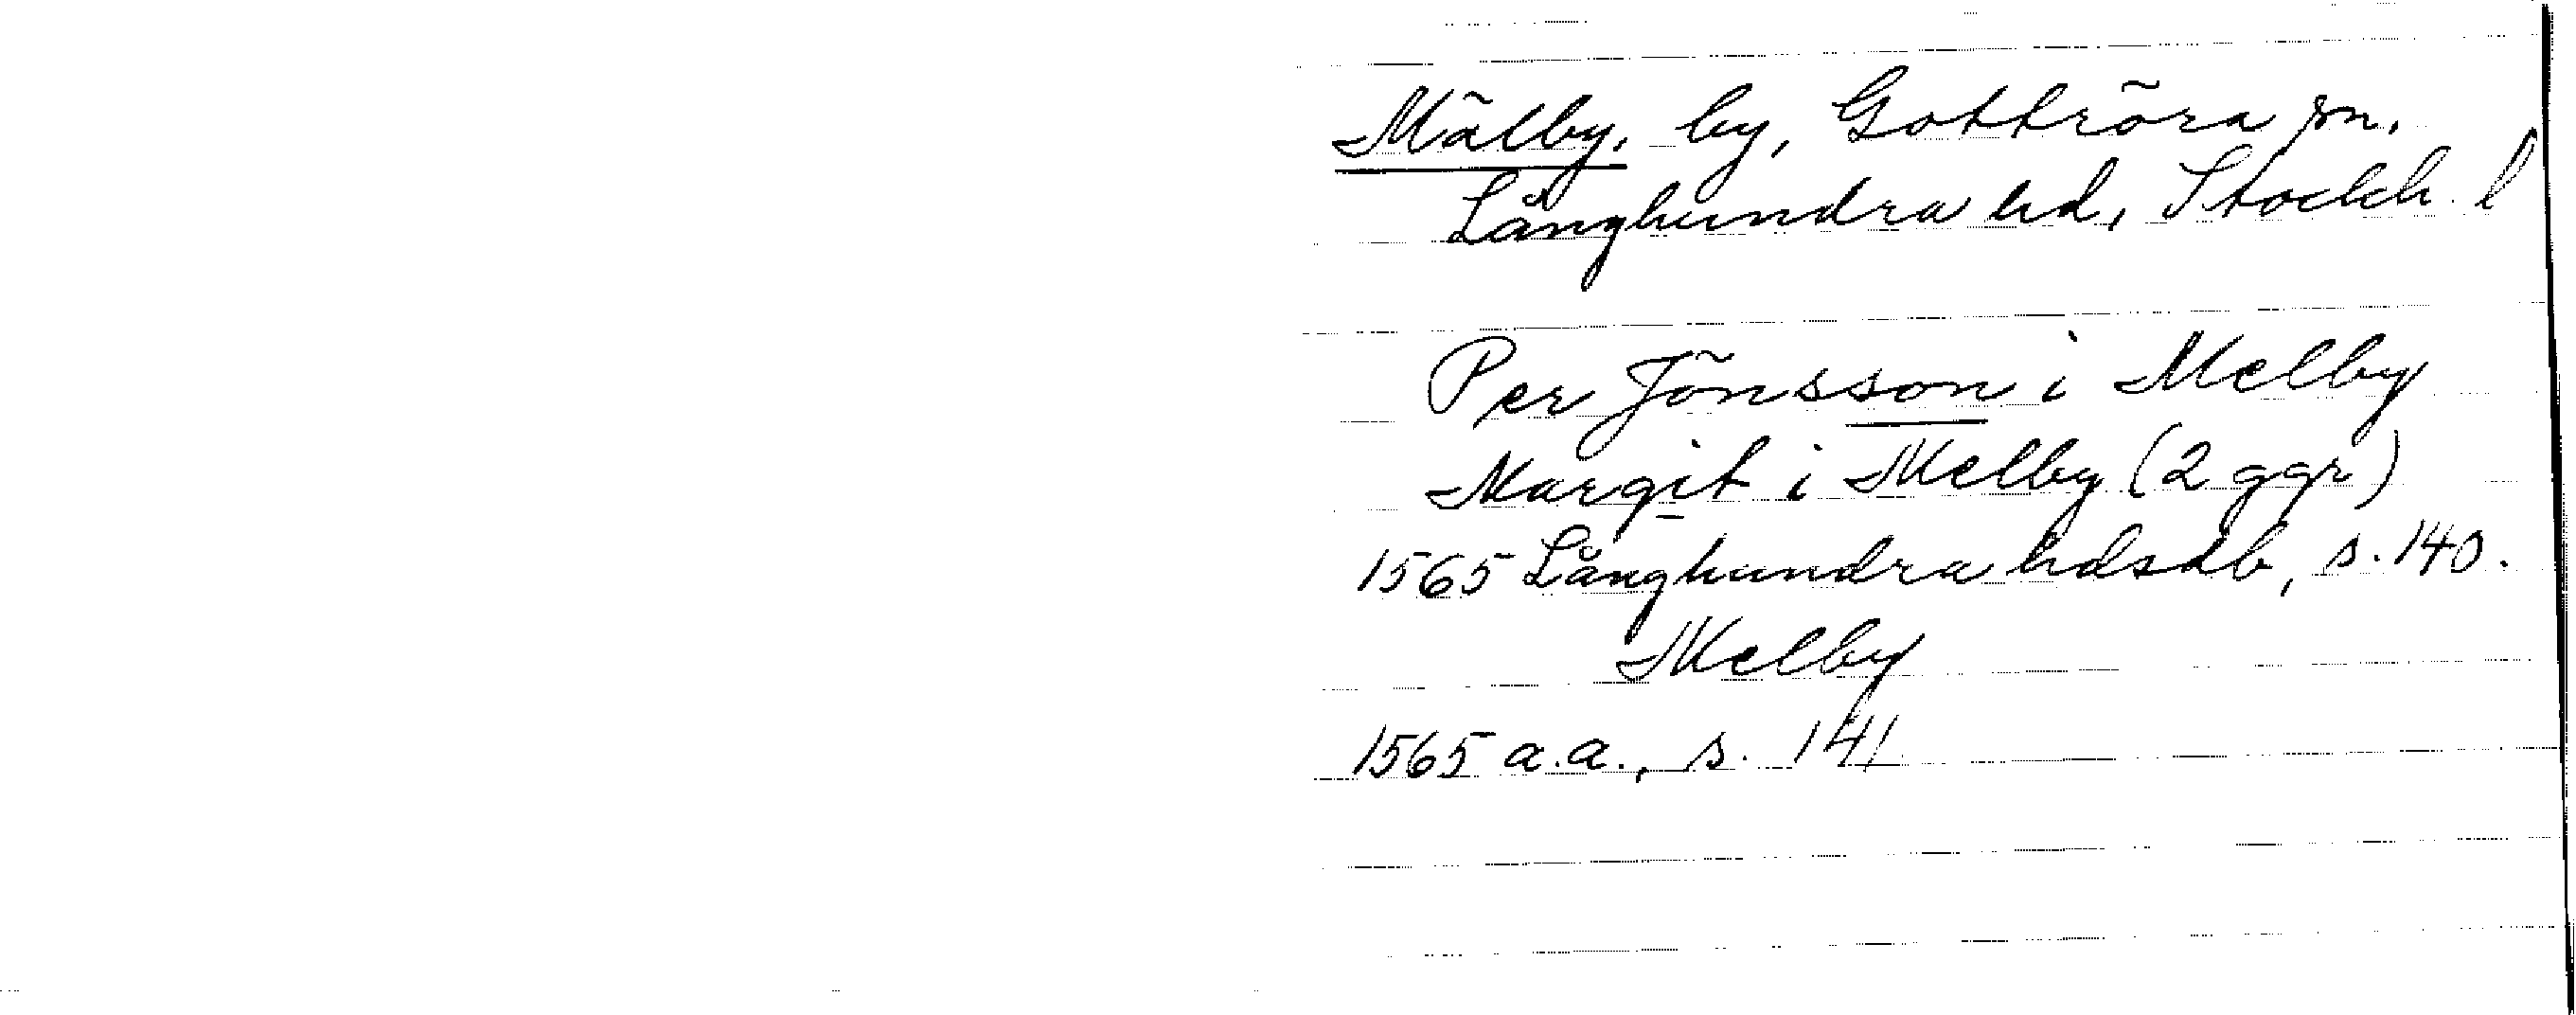 Mälby, by, Gottröra sn.
Långhundra hd, Stockh. l
Per Jönsson i Melby
Margit i Melby (2 ggr)
1565 Långhundra hdsdb, s. 140.
Melby
1565 a.a., s. 141